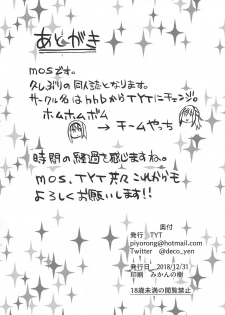 あとがき
mosです。
久しぶりの同人誌となります。
サークル名はhhbからTYTにチェンジ。
ホムホムボム
→ チームやっち
時間の経過を感じますね。
MOS、TYT共々これからも
よろしくお願いします!!
奥付
発行 TYT
piyorong@hotmail.com
Twitter @deco_yen
発行日 2018/12/31
印刷 みかんの樹
18歳未満の閲覧禁止